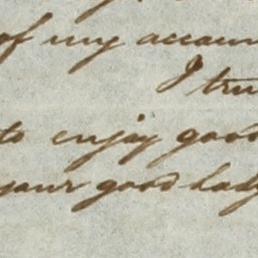 of my accoun
I tru
to enjoy good
your good lady